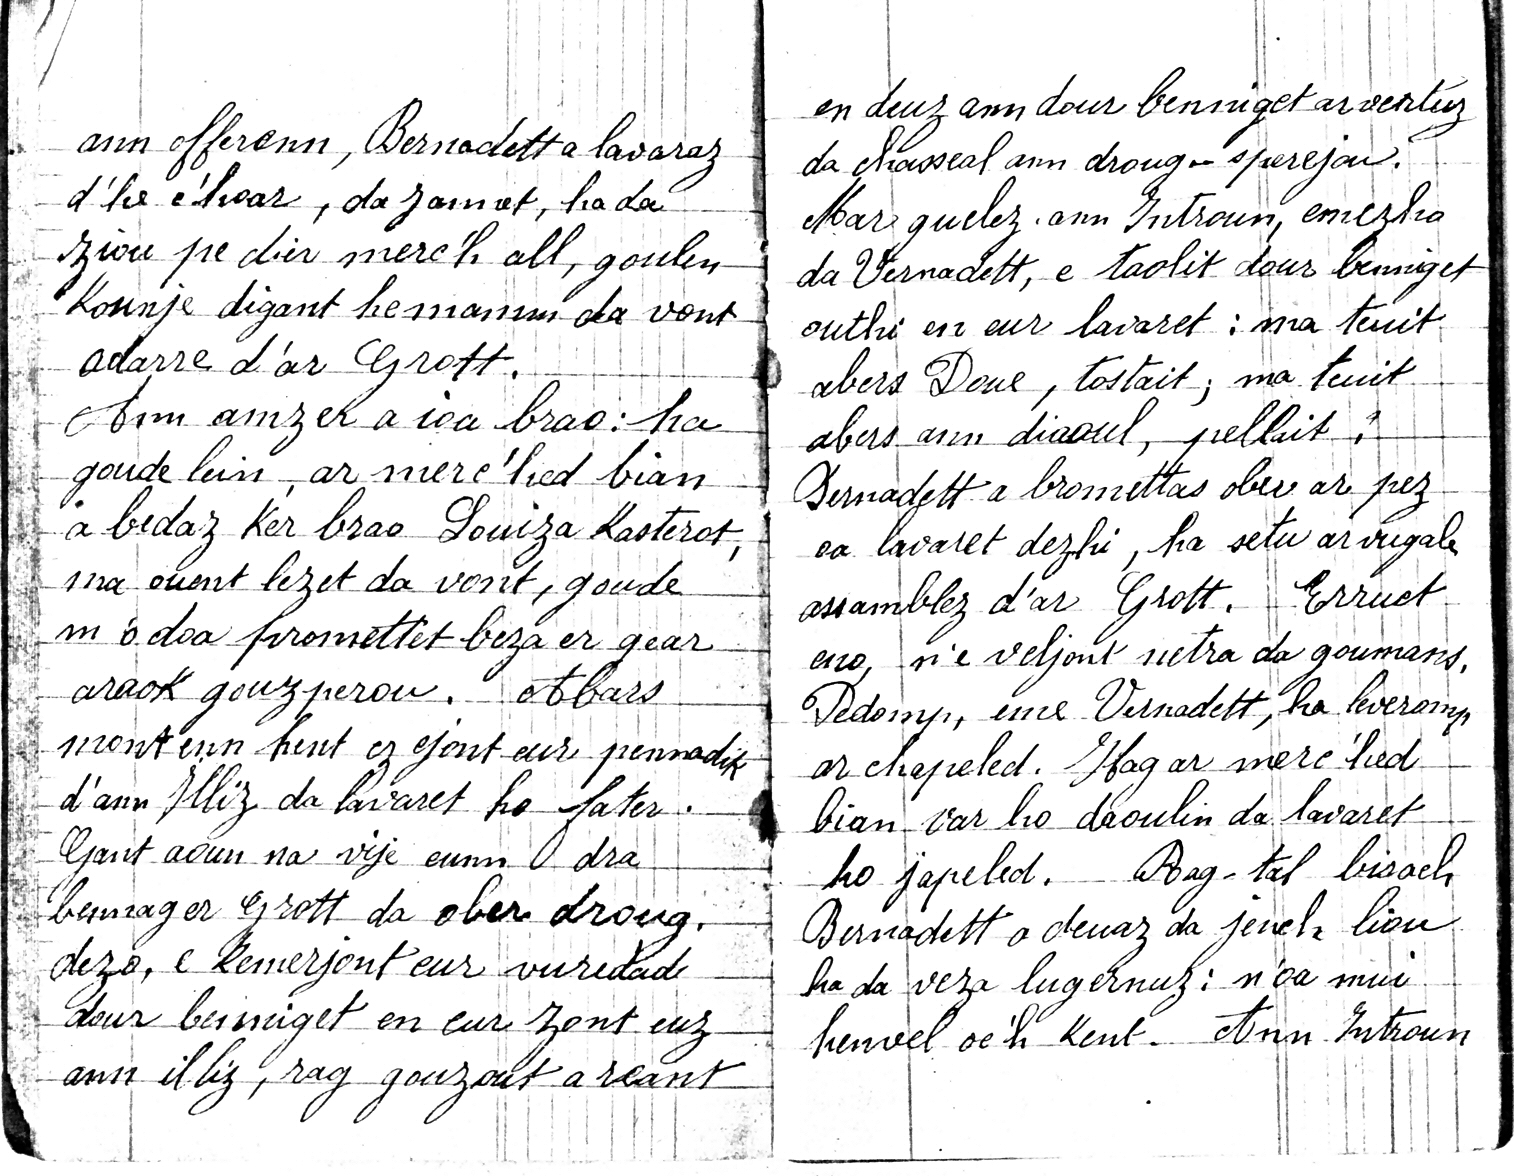 ann offerenn, Bernadett a lavaraz
d'he c'hoar, da Jannet, ha da
ziou pe dier merc'h all, goulen
kounje digant he mamm da vont
adarre d'ar Grott.
Ann amzer a ioa brao: ha
goude lein, ar merc'hed bian
a bedaz ker brao Louiza Kasterot,
ma ouent lezet da vont, goude
m'o doa promettet beza er gear
araok gouzperou. Abars
mont enn hent ez ejont eur pennadik
d'ann Illiz da lavaret ho fater.
Gant aoun na vije eunn dra
bennag er Grott da ober droug.
dezo, e kemerjont eur vuredad
dour benniget en eur zont euz
ann illiz, rag gouzout a reant
en deuz ann dour benniget ar vertuz
da chasseal ann droug-sperejou.
Mar guelez ann Introun, emezho
da Vernadett, e taolit dour benniget
outhi en eur lavaret: ma teuit
abers Doue, tostait; ma teuit
abers ann diaoul, pellait!
Bernadett a bromettas ober ar pez
oa lavaret dezhi, ha setu ar vugale
assamblez d'ar Grott. Erruet
eno, n'e veljont netra da goumans.
Pedomp, eme Vernadett, ha leveromp
ar chapeled. Hag ar merc'hed
bian var ho daoulin da lavaret
ho japeled. Rag-tal bisach
Bernadett a deuaz da jench liou
ha da veza lugernuz: n'oa mui
henvel oc'h kent. Ann Introun